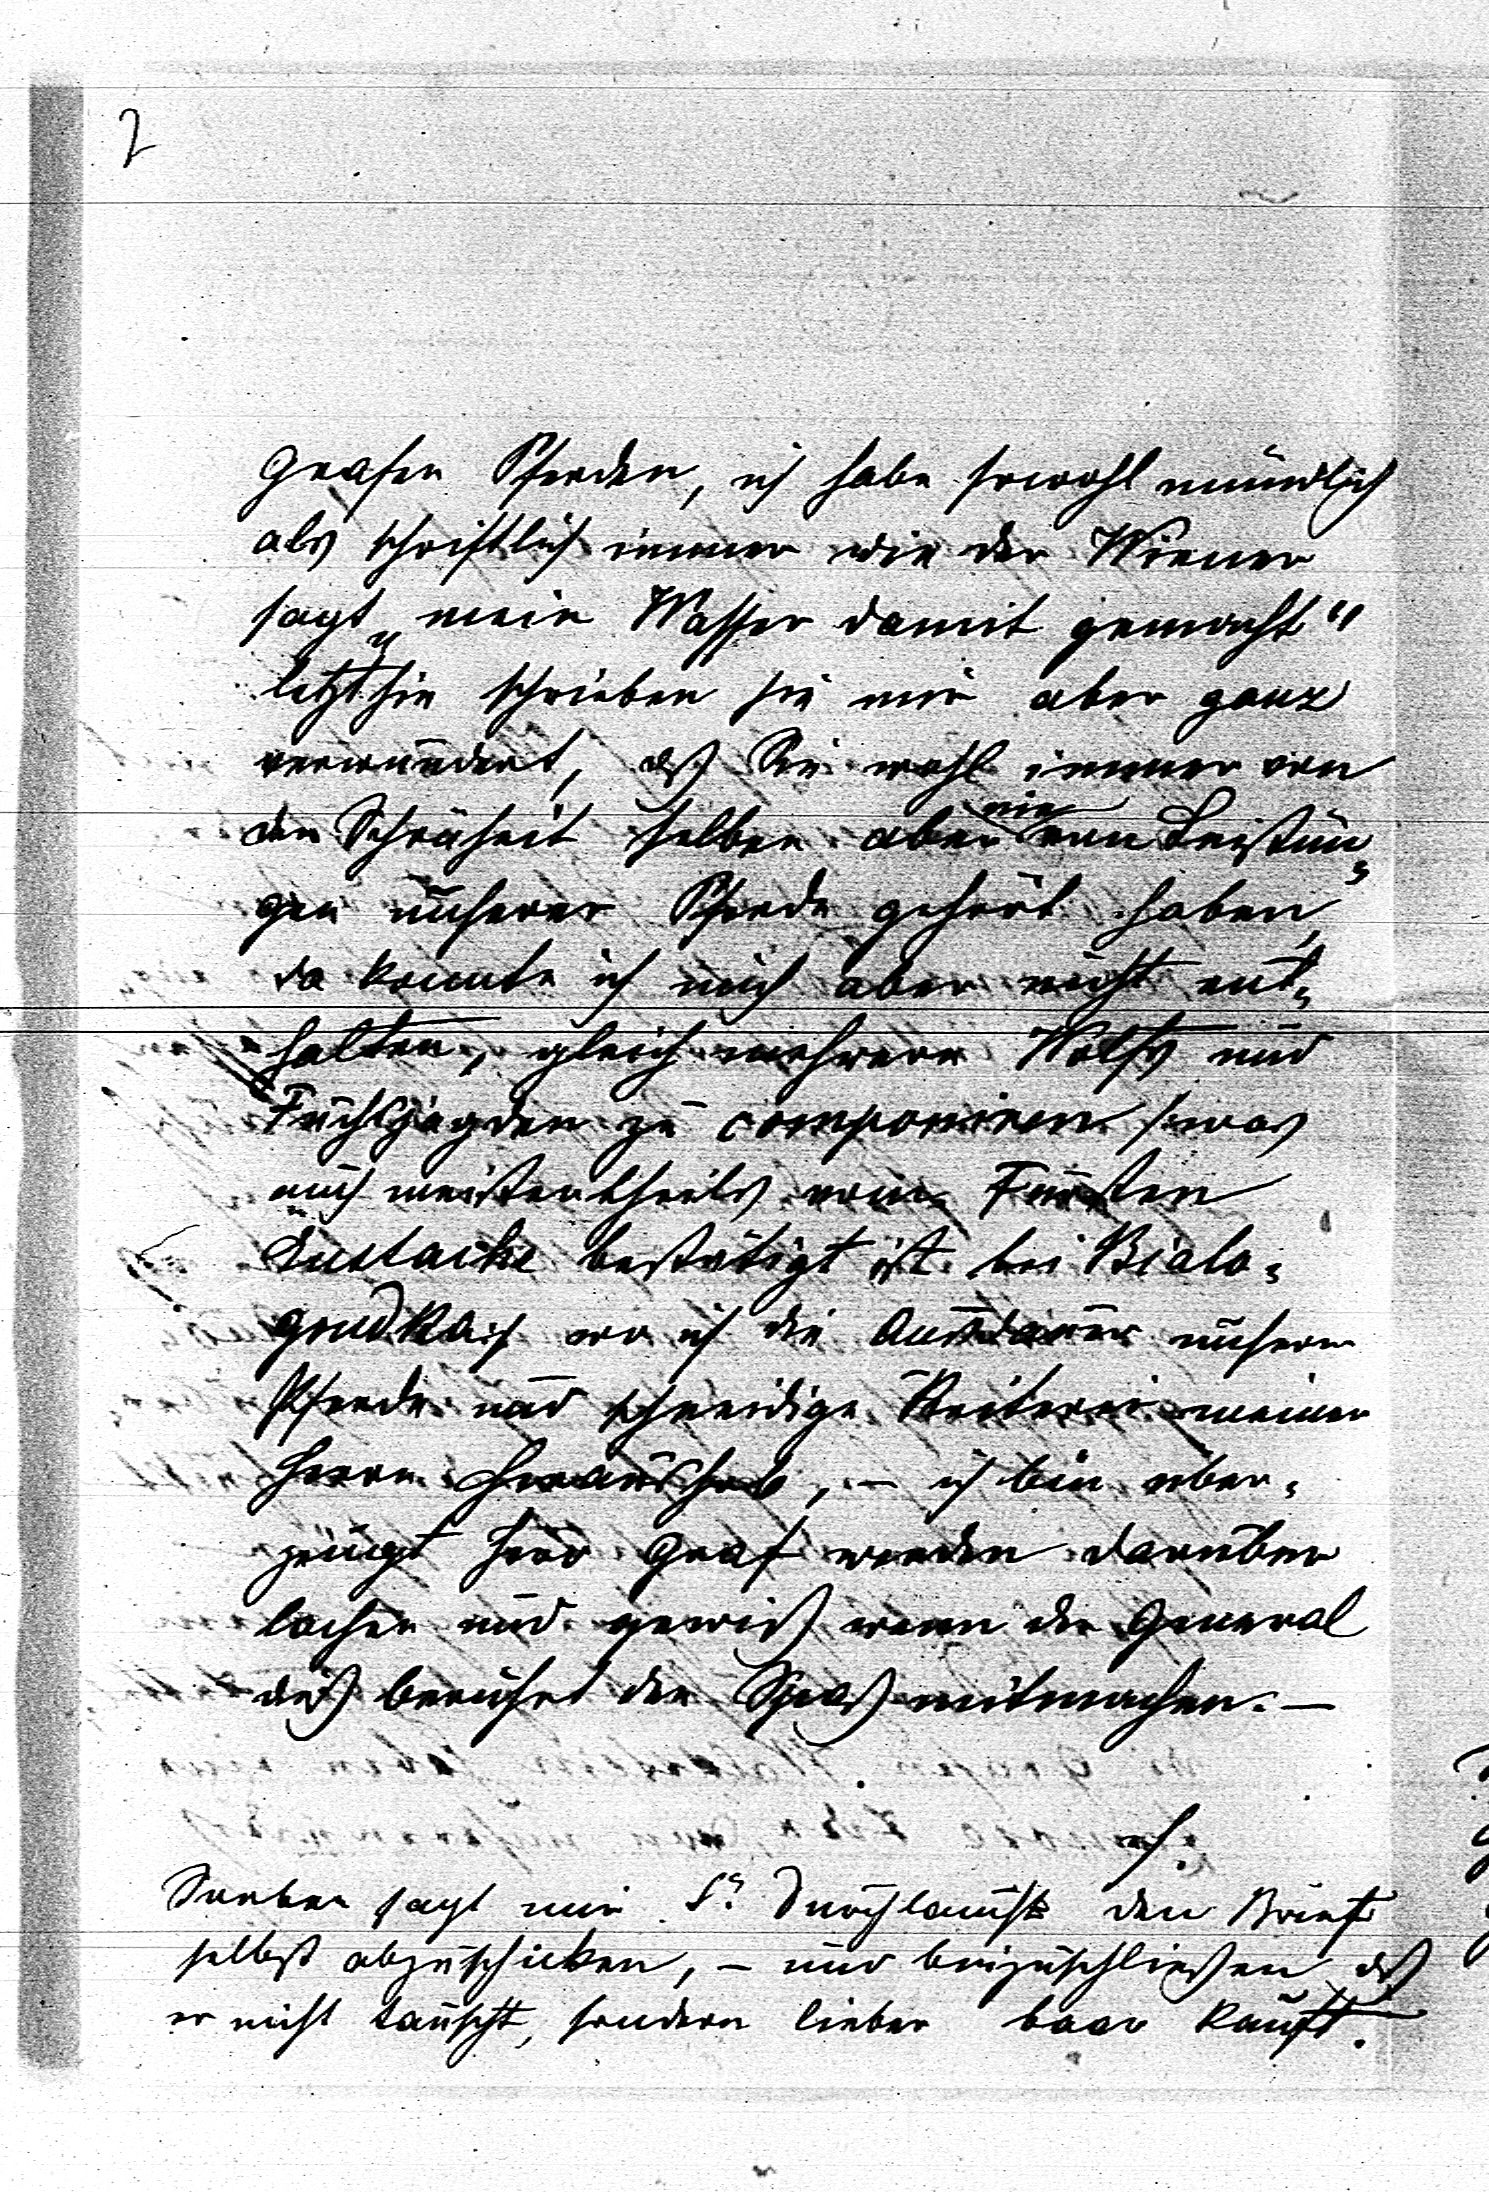 2
Grafen Pferden, ich habe sowohl mündlich
als schriftlich immer wie der Wiener
sagt „mein Wasser damit gemacht"
letzthin schrieben sie mir aber ganz
verwundert, daß Sie wohl immer von
der Schönheit selber aber nie von Leistun-
gen unserer Pferde gehört haben,
da konnte ich mich aber nicht ent-
halten, gleich mehrere Wolfs und
Fuchsjagden zu componiren, was
auch meistentheils vom Fürsten
Eustache bestätigt ist bei Bialo-
grudka, wo ich die Ausdauer unserer
Pferde und schneidige Reiterei meiner
Herrn heraushob, – ich bin über-
zeugt Herr Graf werden darüber
lachen und gewiß wenn der General
dieß berührt den Spaß mitmachen. –
Soeben sagt mir Sr Durchlaucht den Brief
selbst abzuschicken, – und beizuschließen daß
er nicht tauscht, sondern lieber baar kauft.